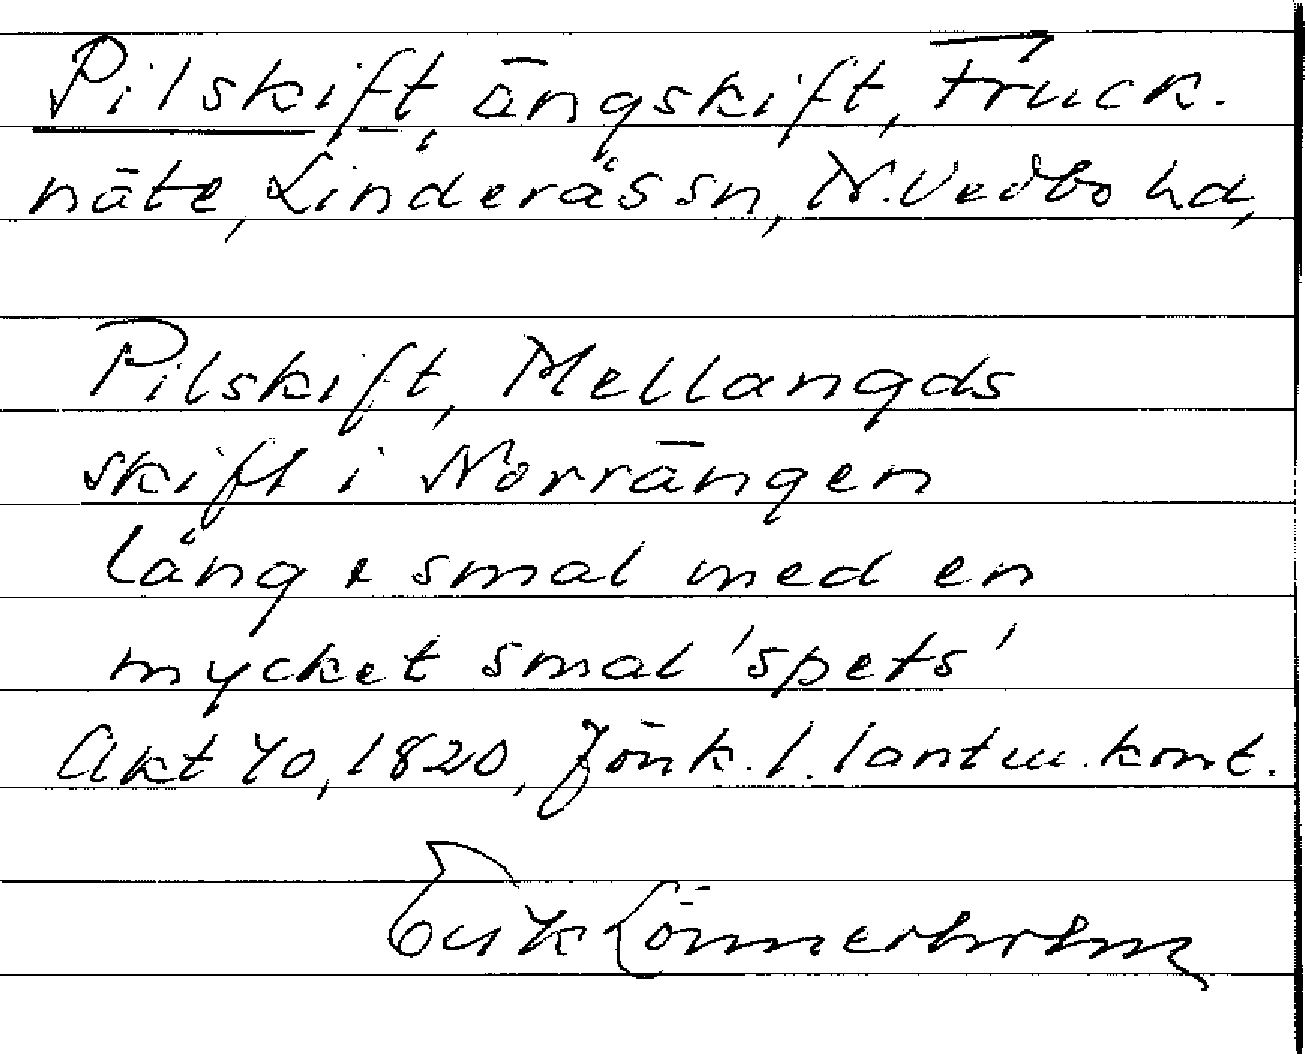 Pilskift, ängskift, Fruck.
näte, Linderås sn, N. Vedbo hd,
Pilskift, Mellangds
skift i Norrängen
lång & smal med en
mycket smal 'spets'
Akt 40, 1820, Jönk. l. lantm. kont.
Erik Lönnerholm